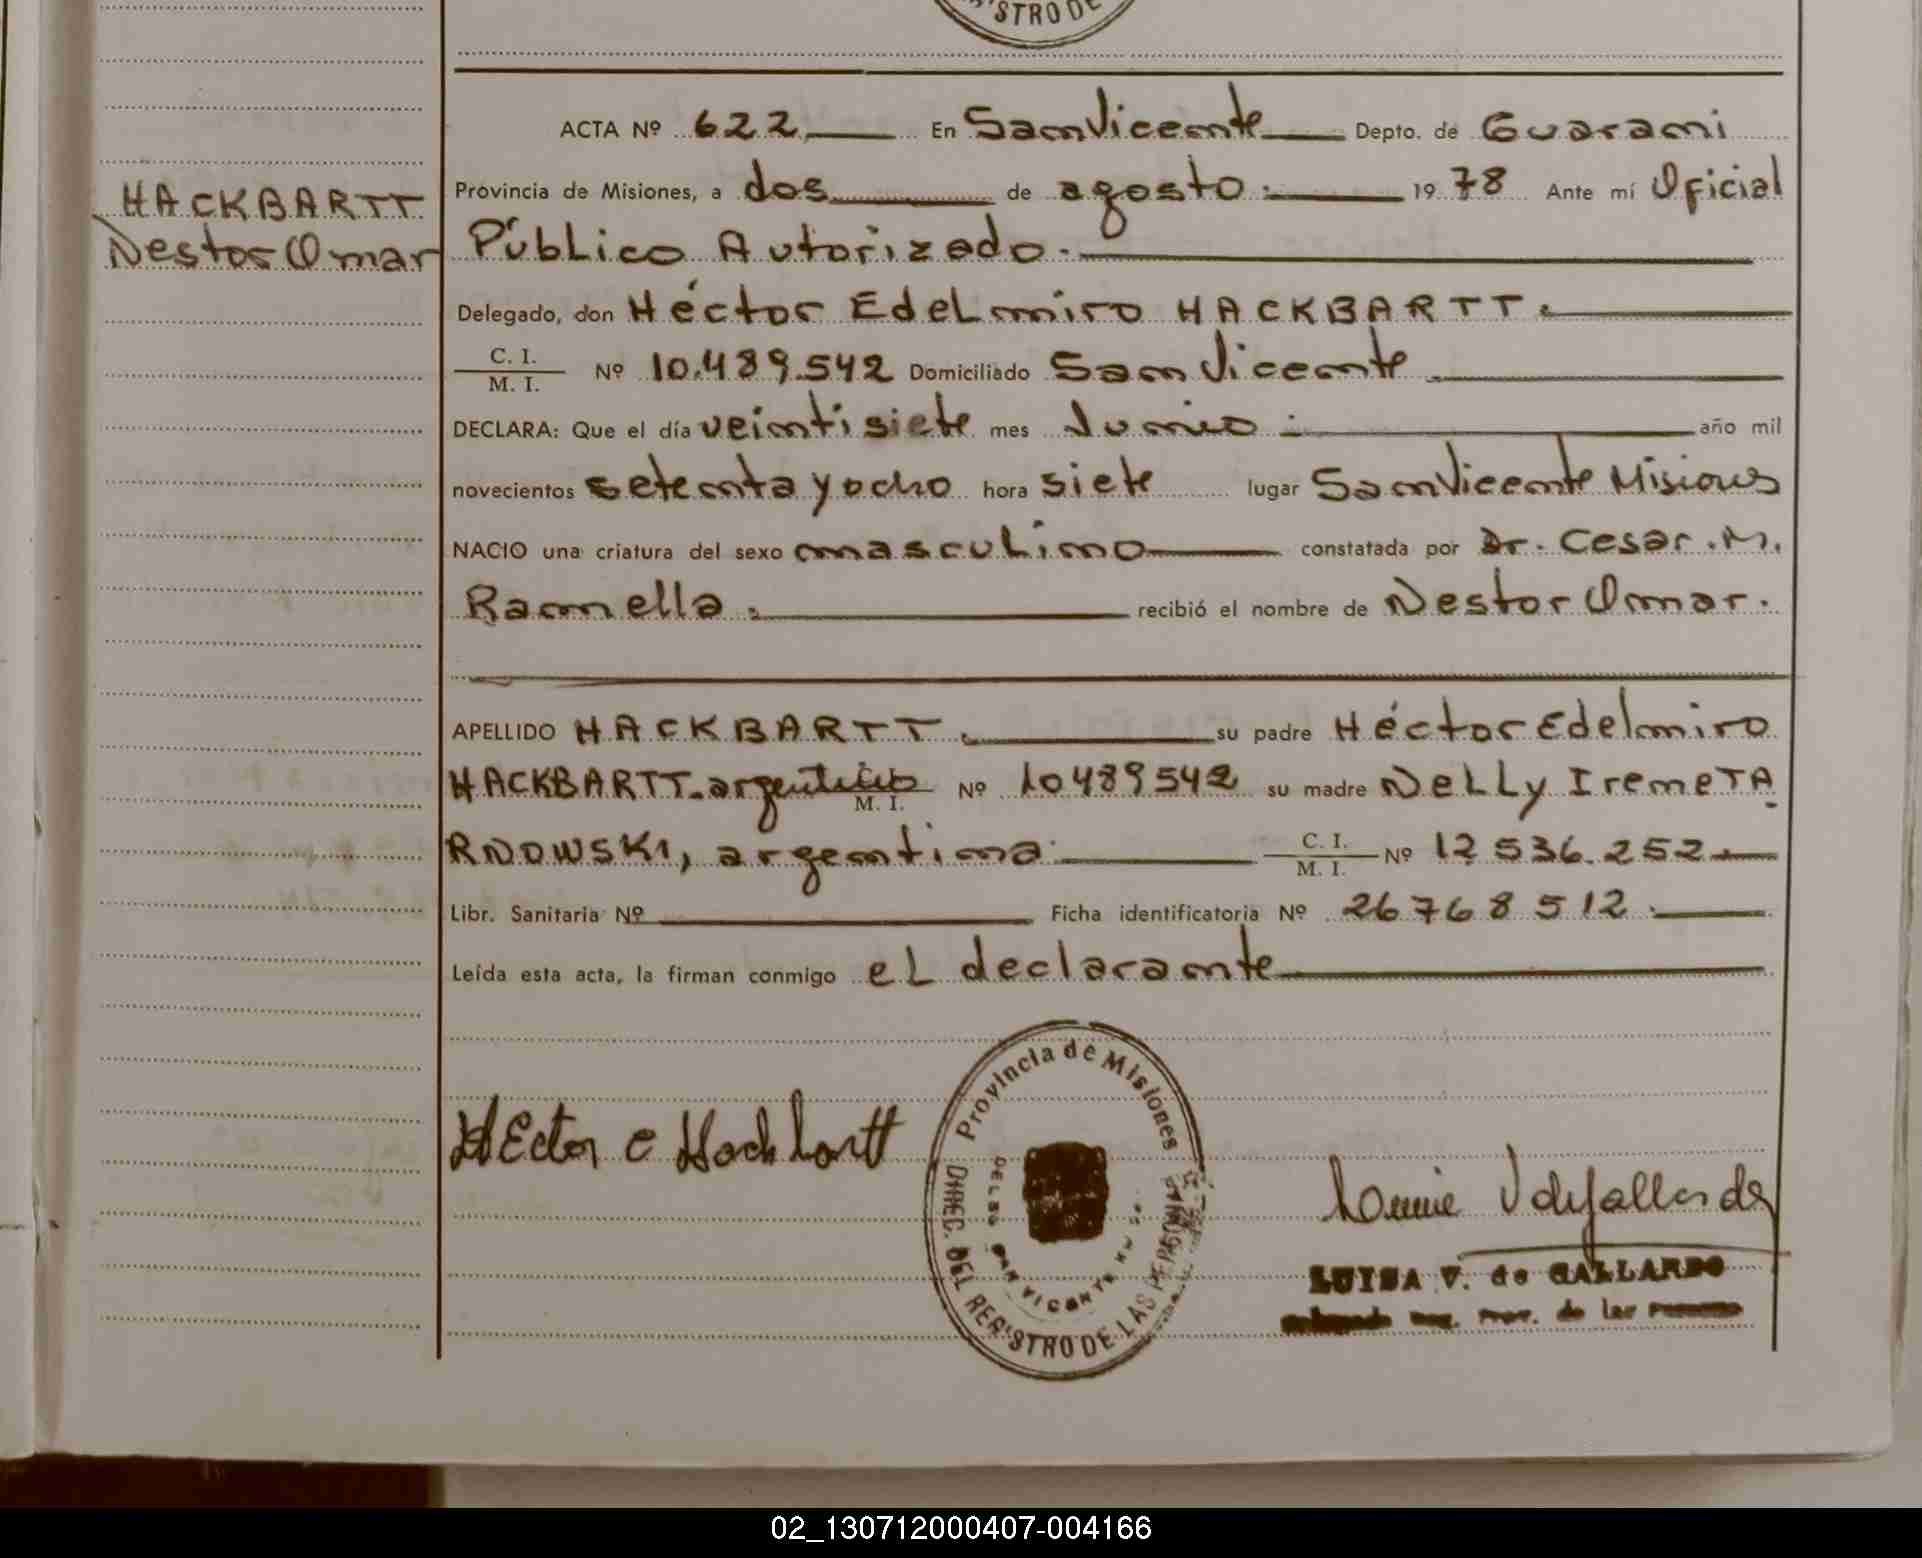 STRO DE
ACTA Nº 622 En San Vicente Depto. de Guarani
HACKBARTT
Nestor Omar
Provincia de Misiones, a dos de agosto 1978 Ante mí Oficial
Público Autorizado.
Delegado, don Héctor Edelmiro HACKBARTT.
C. I.
M. I. Nº 10.489.542 Domiciliado San Vicente
DECLARA: Que el día veintisiete mes Junio año mil
novecientos setenta y ocho hora siete lugar San Vicente Misiones
NACIO una criatura del sexo masculino constatada por Dr. Cesar. M.
Ramella. recibió el nombre de Nestor Omar.
APELLIDO HACKBARTT. su padre Héctor Edelmiro
HACKBARTT. argentino M. I. Nº 10489542 su madre Nelly Irene TA
RNOWSKI, argentina C. I.
M. I. Nº 12536.252
Libr. Sanitaria Nº Ficha identificatoria Nº 26768512.
Leída esta acta, la firman conmigo el declarante
Héctor E Hackbartt
Provincia de Misiones
DIREC. DEL REGISTRO DE LAS PERSONAS
SAN VICENTE
LUISA V. de GALLARDO
Prov. de las Personas
02_130712000407-004166